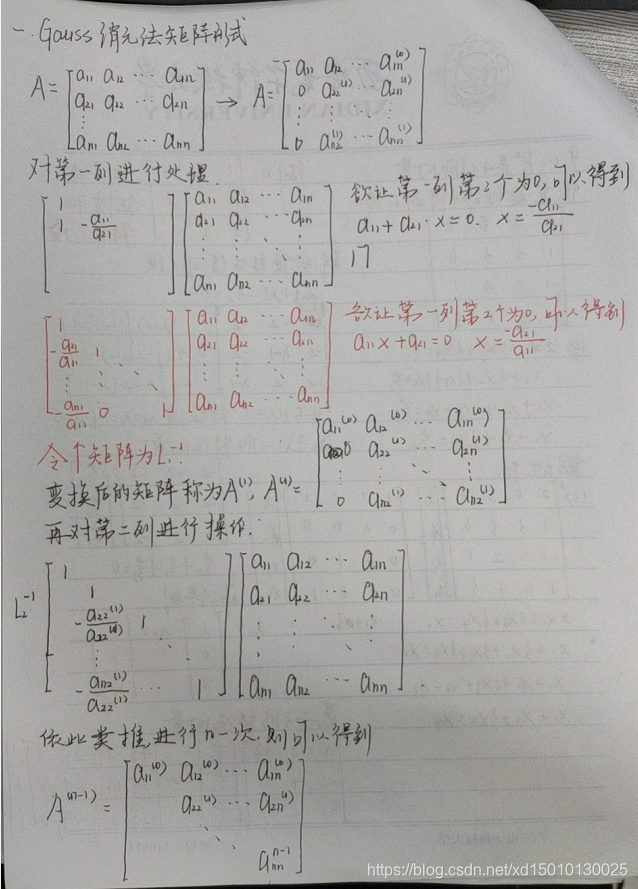 一. Gauss 消元法矩阵形式
A = [ a11 a12 ⋯ a1n ; a21 a22 ⋯ a2n ; ⋮ ; an1 an2 ⋯ ann ] → A = [ a11 a12 ⋯ a1n^(0) ; 0 a22^(1) ⋯ a2n^(1) ; ⋮ ⋮ ⋮ ; 0 an2^(1) ⋯ ann^(1) ]
对第一列进行处理.
[ 1 ; 1 -a11/a21 ] [ a11 a12 ⋯ a1n ; a21 a22 ⋯ a2n ; ⋮ ⋮ ⋱ ⋮ ; an1 an2 ⋯ ann ]
欲让第一列第2个为0, 可以得到
a11 + a21 · x = 0. x = -a11/a21
[ 1 ; -a21/a11 1 ; ⋮ ⋮ ⋱ ; -an1/a11 0 1 ] [ a11 a12 ⋯ a1n ; a21 a22 ⋯ a2n ; ⋮ ⋮ ⋮ ; an1 an2 ⋯ ann ]
欲让第一列第2个为0, 可以得到
a11 x + a21 = 0 x = -a21/a11
令个矩阵为L1^-1
变换后的矩阵称为A^(1), A^(1) = [ a11^(0) a12^(0) ⋯ a1n^(0) ; 0 a22^(1) ⋯ a2n^(1) ; ⋮ ⋮ ⋱ ⋮ ; 0 an2^(1) ⋯ an2^(1) ]
再对第二列进行操作.
L2^-1 [ 1 ; 1 ; -a22^(1)/a22^(1) 1 ; ⋮ ⋱ ; -an2^(1)/a22^(1) ⋯ 1 ] [ a11 a12 ⋯ a1n ; a21 a22 ⋯ a2n ; ⋮ ⋮ ⋱ ⋮ ; an1 an2 ⋯ ann ]
依此类推, 进行n-1次. 则可以得到
A^(n-1) = [ a11^(0) a12^(0) ⋯ a1n^(0) ; a22^(1) ⋯ a2n^(1) ; ⋱ ; ann^n-1 ]
https://blog.csdn.net/xd15010130025